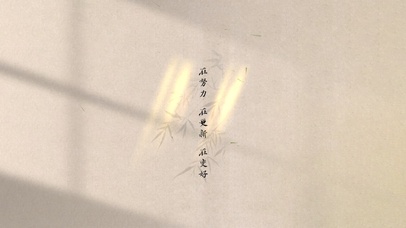 在努力 在更新 在变好